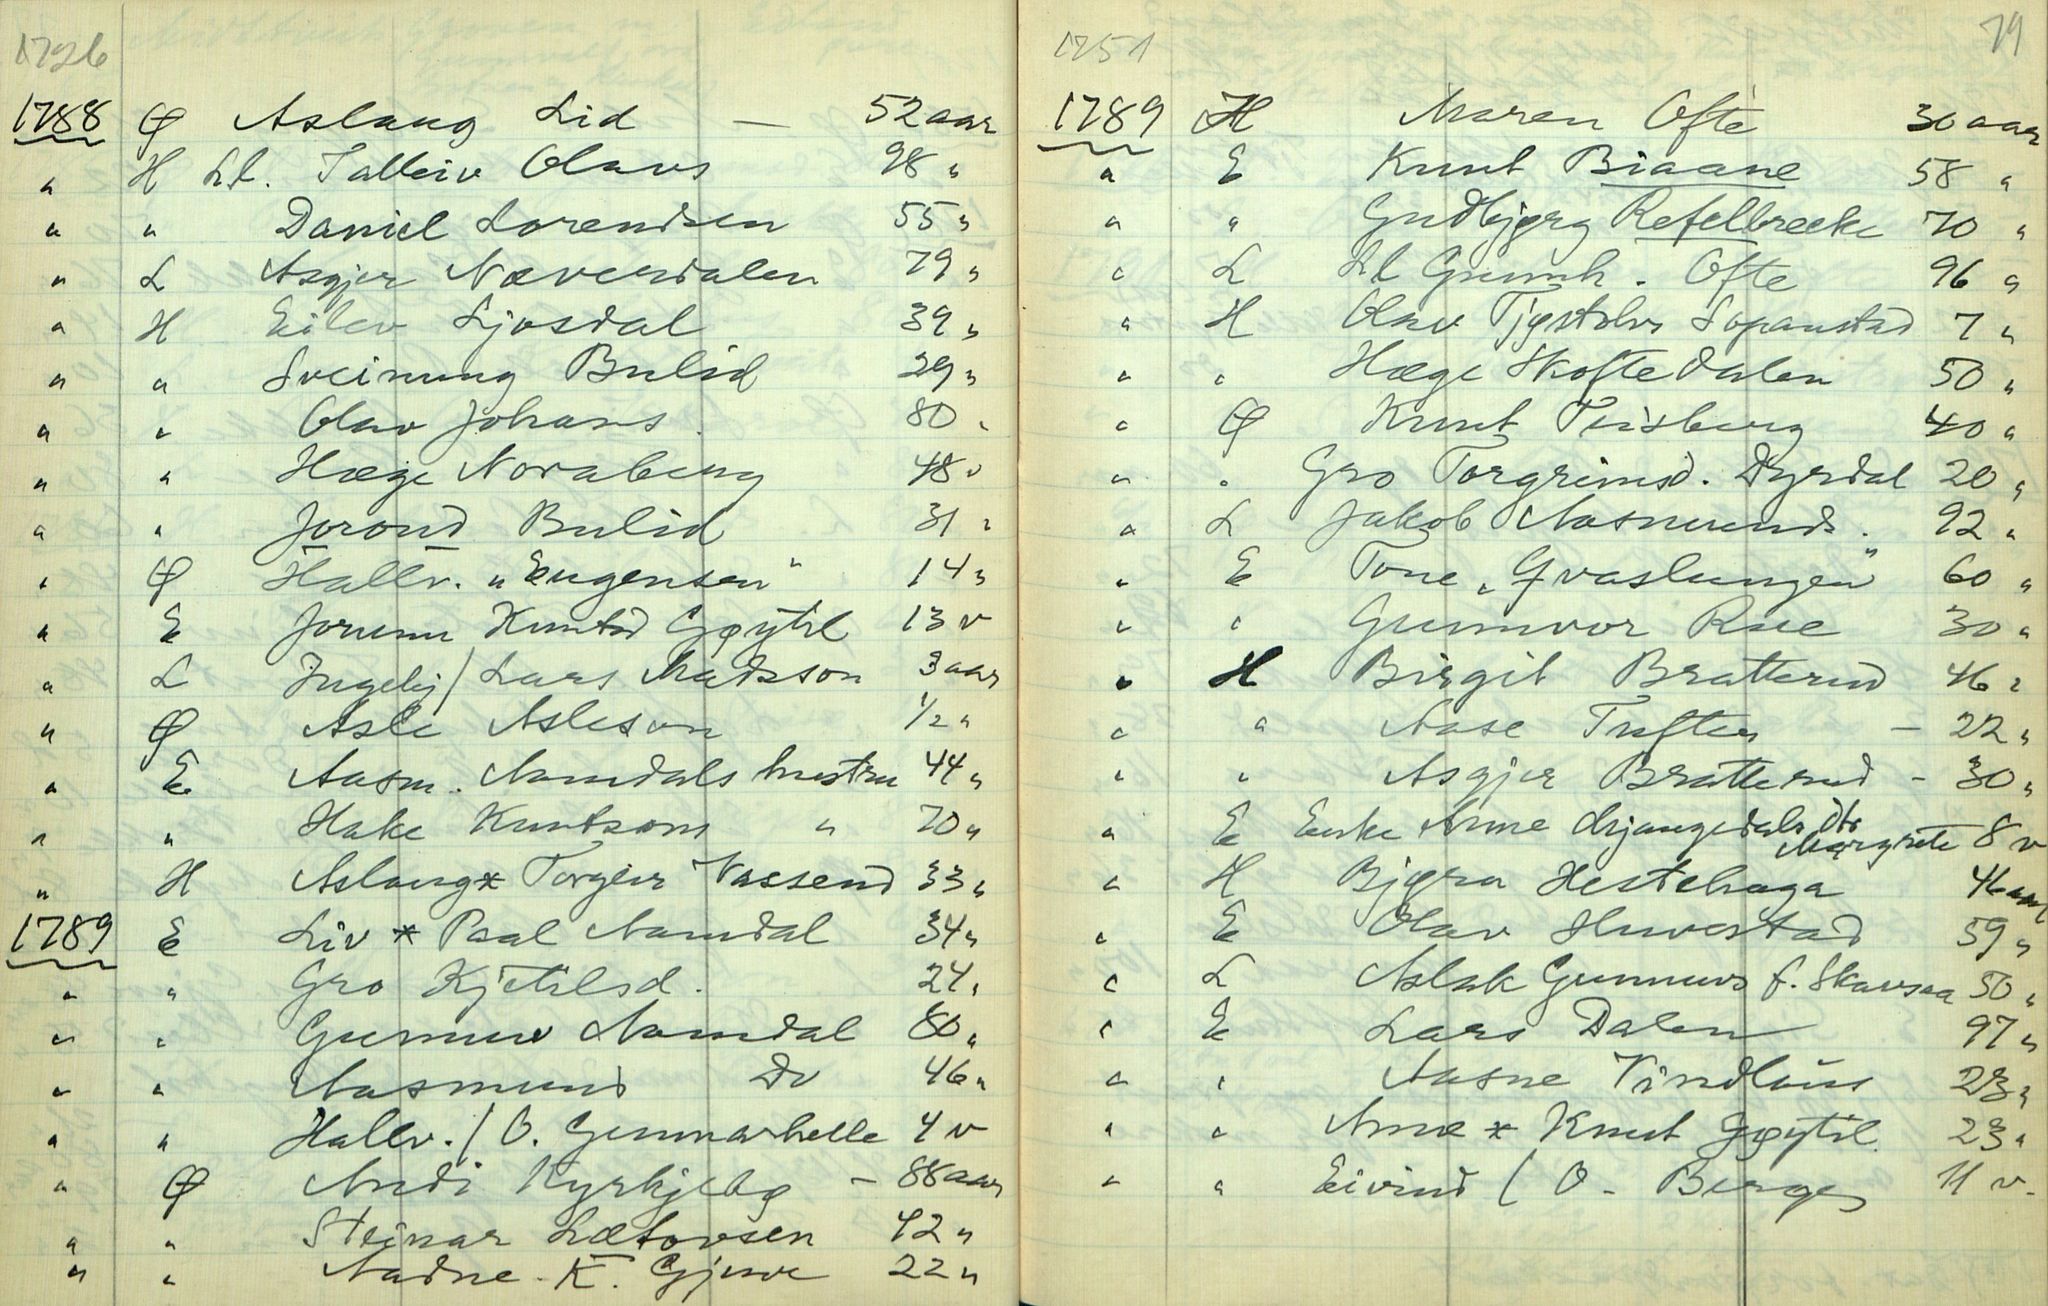 1726
1788 Ø Aslaug Lid — 52 aar
" H Ll. Talleiv Olavs 98 "
" " Daniel Lorendsen 55 "
" L Asgjer Næverdalen 79 "
" H Eilev Ljosdal 39 "
" " Sveinung Bulid 29 "
" " Olav Johans. 80 "
" " Hæge Noraberg 48 "
" " Jorond Bulid 31 "
" Ø Hallv. "Eugensen" 14 "
" E Jorunn Knutsd Gøytil 13 v
" L Ingebj / Lars Madsson 3 aar
" Ø Asle Asleson 1/2 "
" E Aasm. Aamdals hustru 44 "
" " Hake Knutsons " 70 "
" H Aslaug * Torgeir Vassend 33 "
1789 E Liv * Paal Aamdal 34 "
" " Gro Kjetilsd. 24 "
" " Gunnuv Aamdal 80 "
" " Aasmund Do 46 "
" " Hallv. / O. Gunnarhelle 4 v
" Ø Andi Kyrkjebø — 88 aar
" " Steinar Lætovsen 42 "
" " Aadne K. Gjuve 22 "
1751
79
1789 H Maren Ofte 30 aar
" E Knut Biaane 58 "
" " Gudbjørg Refelbrekke 70 "
" L Ll Gunnh. Ofte 96 "
" H Olav Tjøstolvs Sopanstad 7 "
" " Hæge Skoftedalen 50 "
" Ø Knut Teisberg 40 "
" " Gro Torgrimsd. Dyrdal 20 "
" L Jakob Aasmunds. 92 "
" E Tone "Gvaslungen" 60 "
" " Gunnvor Rue 30 "
" H Birgit Bratterud 46 "
" " Aase Tuften — 22 "
" " Asgjer Bratterud - 30 "
" E Enke Anne Mjaugedals Dtr Margrete 8 v
" H Bjørn Hestehaga 46 aar
" E Olav Huvestad 59 "
" L Aslak Gunnuvs f. Skavsaa 50 "
" E Lars Dalen 97 "
" " Aasne Vindlaus 23 "
" " Anne * Knut Gøytil 23 "
" " Eivind / O. Berge 11 v.